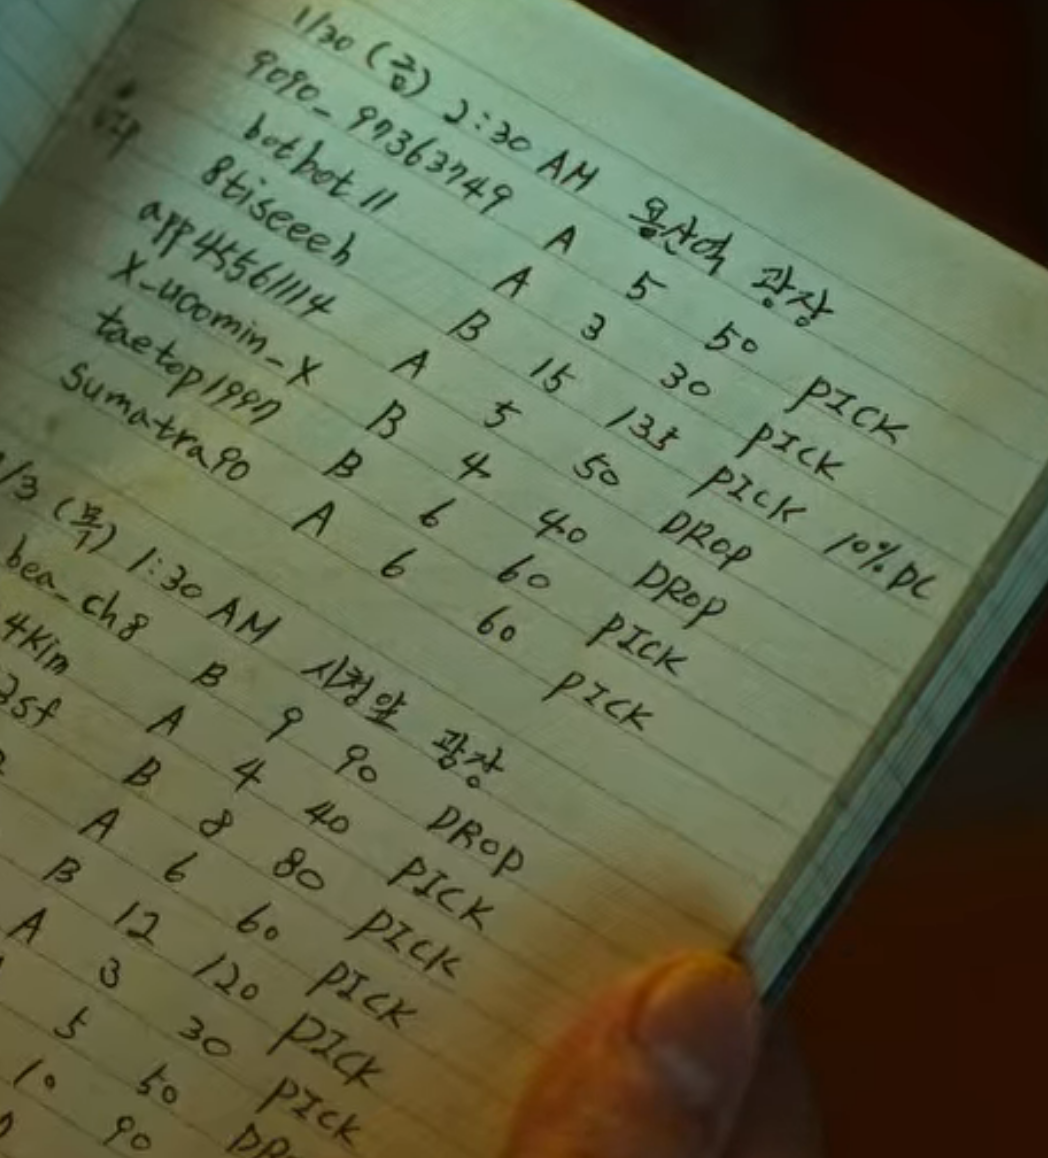 1/30 (금) 2:30 AM 용산역 광장
9090_97363749 A 5 50 PICK
botbot11 A 3 30 PICK
8tiseeeh B 15 135 PICK 10%DC
app45561114 A 5 50 DROP
X_uoomin_X B 4 40 DROP
taetop1997 B 6 60 PICK
sumatra90 A 6 60 PICK
/3 (목) 1:30 AM 시청앞 광장
bea_ch8 B 9 90 DROP
4kim A 4 40 PICK
sf B 8 80 PICK
A 6 60 PICK
B 12 120 PICK
A 3 30 PICK
5 50
10 90